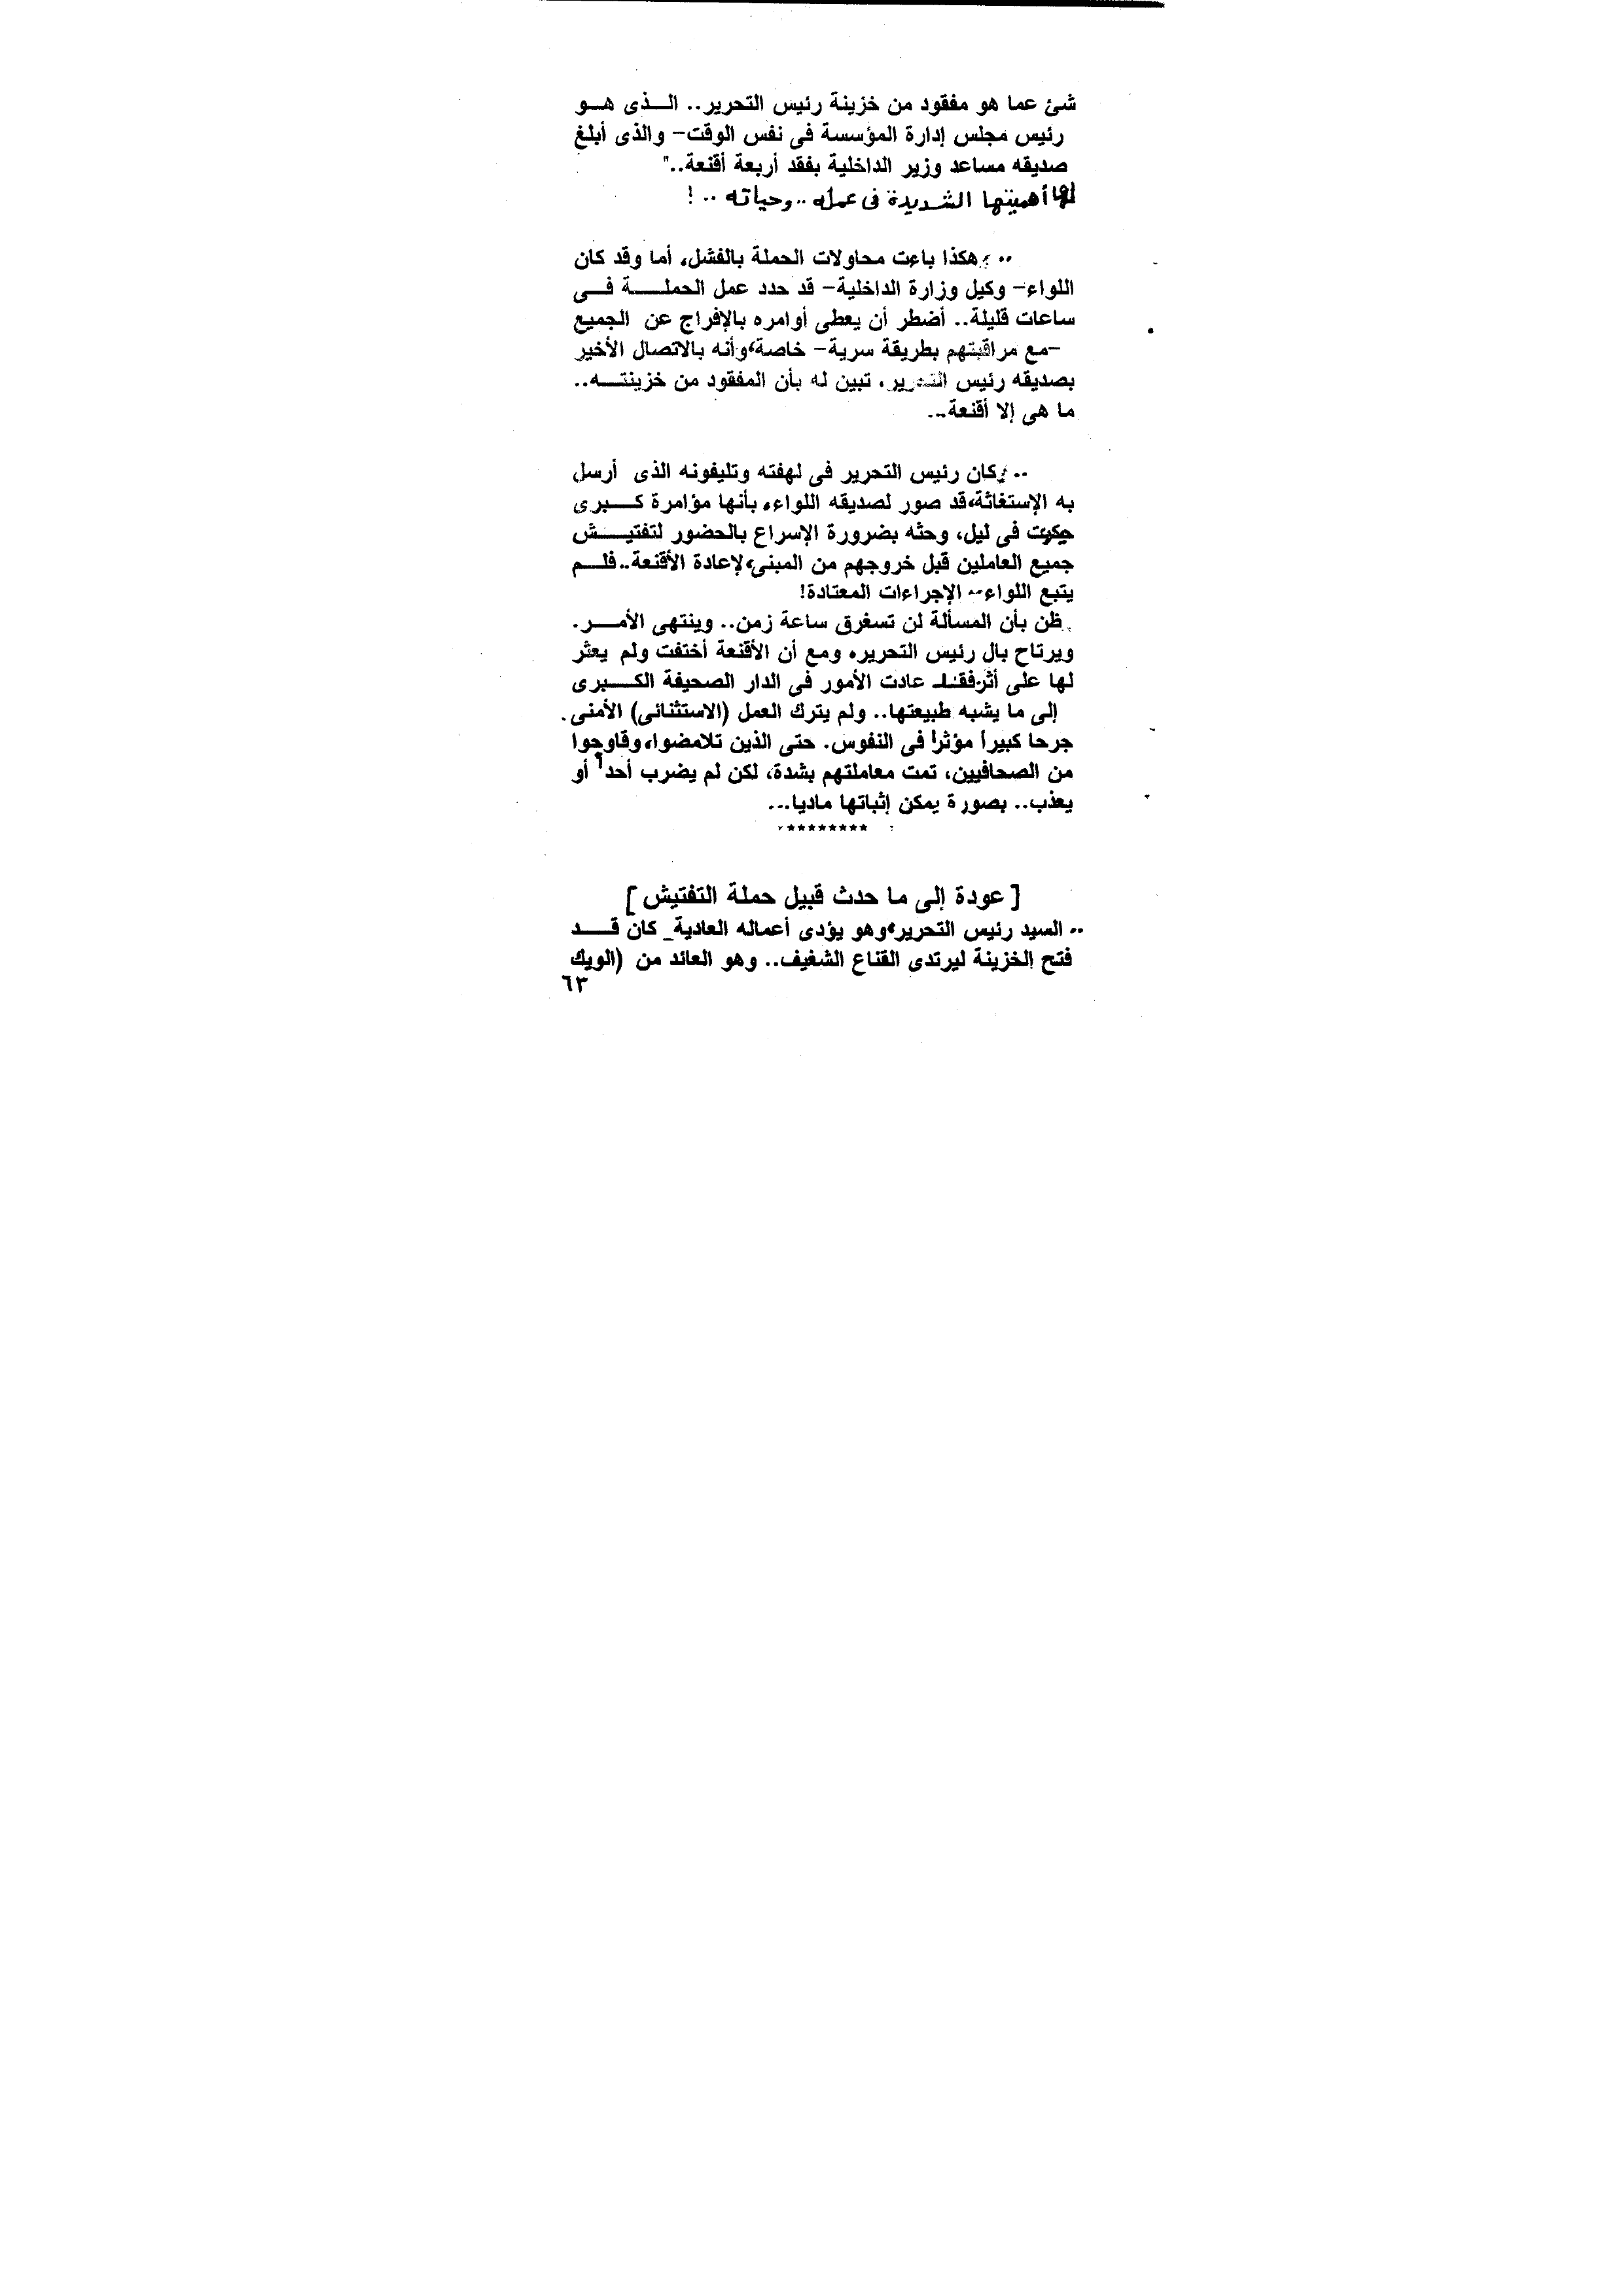 شئ عما هو مفقود من خزينة رئيس التحرير.. الذى هو
رئيس مجلس إدارة المؤسسة فى نفس الوقت- والذى أبلغ
صديقه مساعد وزير الداخلية بفقد أربعة أقنعة.."
لها أهميتها الشديدة فى عمله .. وحياته .. !
.. وهكذا باءت محاولات الحملة بالفشل، أما وقد كان
اللواء- وكيل وزارة الداخلية- قد حدد عمل الحملة فى
ساعات قليلة.. أضطر أن يعطى أوامره بالإفراج عن الجميع
-مع مراقبتهم بطريقة سرية- خاصة، وأنه بالاتصال الأخير
بصديقه رئيس التحرير، تبين له بأن المفقود من خزينته..
ما هى إلا أقنعة...
.. وكان رئيس التحرير فى لهفته وتليفونه الذى أرسل
به الإستغاثة، قد صور لصديقه اللواء، بأنها مؤامرة كبرى
فى ليل، وحثه بضرورة الإسراع بالحضور لتفتيش
جميع العاملين قبل خروجهم من المبنى، لإعادة الأقنعة.. فلم
يتبع اللواء.. الإجراءات المعتادة!
ظن بأن المسألة لن تسغرق ساعة زمن.. وينتهى الأمر.
ويرتاح بال رئيس التحرير، ومع أن الأقنعة أختفت ولم يعثر
لها على أثر. فقد عادت الأمور فى الدار الصحيفة الكبرى
إلى ما يشبه طبيعتها.. ولم يترك العمل (الاستثنائى) الأمنى.
جرحا كبيراً مؤثراً فى النفوس. حتى الذين تلامضوا، وقاوحوا
من الصحافيين، تمت معاملتهم بشدة، لكن لم يضرب أحد أو
يعذب.. بصورة يمكن إثباتها ماديا...
********
[عودة إلى ما حدث قبيل حملة التفتيش]
.. السيد رئيس التحرير، وهو يؤدى أعماله العادية_ كان قد
فتح الخزينة ليرتدى القناع الشفيف.. وهو العائد من (الويك
٦٣